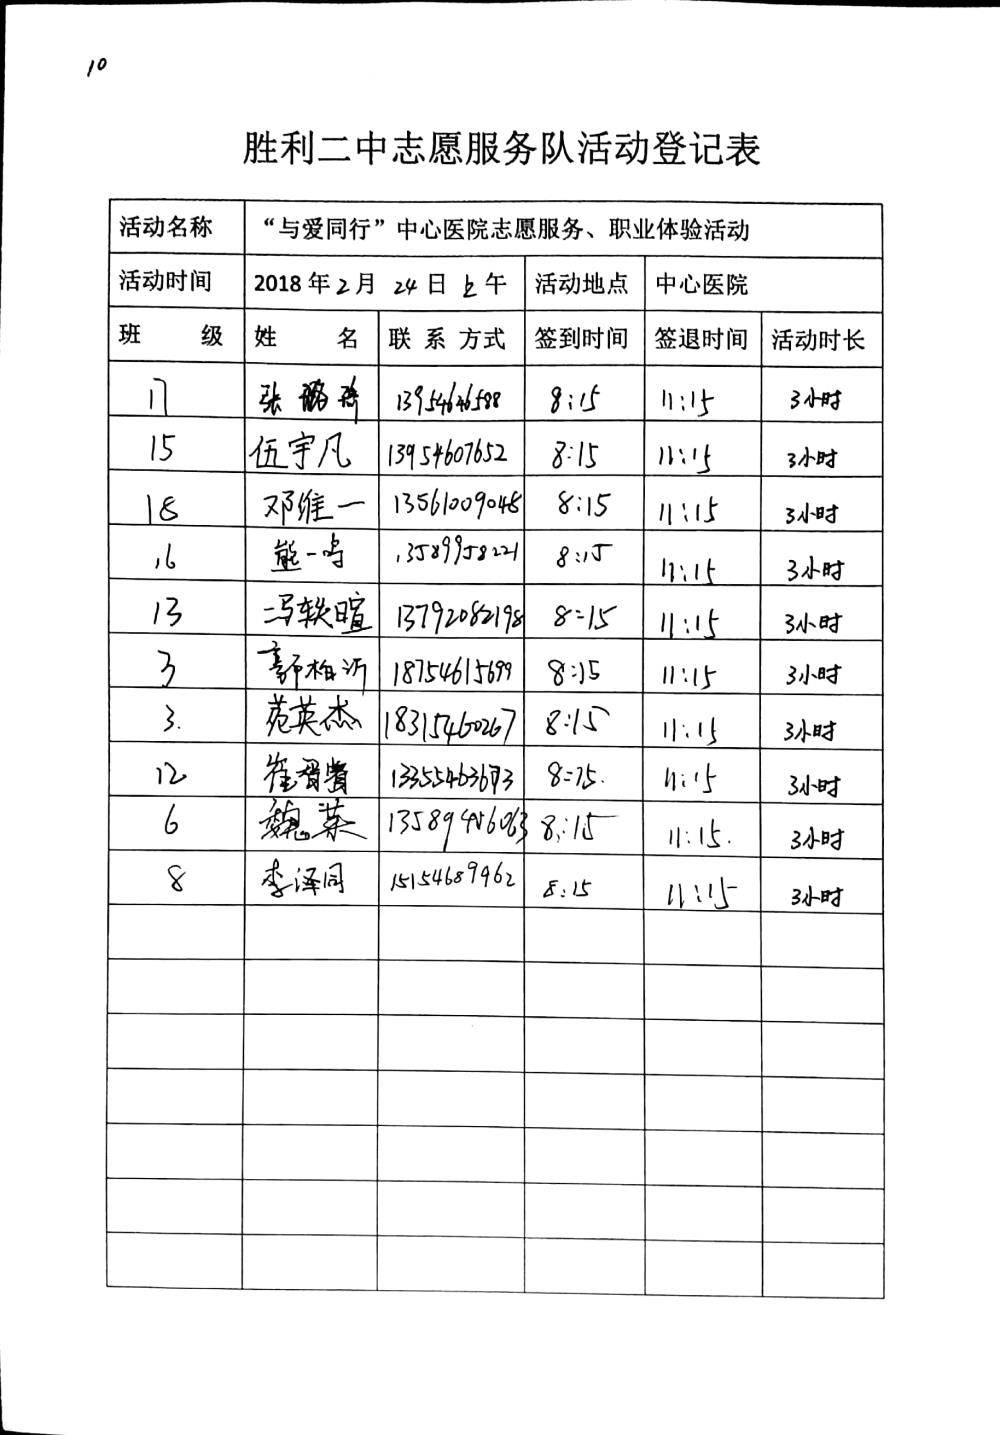 10
胜利二中志愿服务队活动登记表
活动名称 “与爱同行”中心医院志愿服务、职业体验活动
活动时间 2018年2月 24日上午 活动地点 中心医院
班 级 姓 名 联 系 方式 签到时间 签退时间 活动时长
17 张 13954646588 8:15 11:15 3小时
15 伍宇凡 13954607652 8:15 11:15 3小时
18 邓维一 13561009048 8:15 11:15 3小时
16 熊一鸣 13589958221 8:15 11:15 3小时
13 冯轶暄 13792082198 8:15 11:15 3小时
3 郭柏沂 18754615699 8:15 11:15 3小时
3. 范英杰 18315460267 8:15 11:15 3小时
12 崔 8:15. 11:15 3小时
6 魏 13589456063 8:15 11:15. 3小时
8 李泽同 15154689962 8:15 11:15 3小时